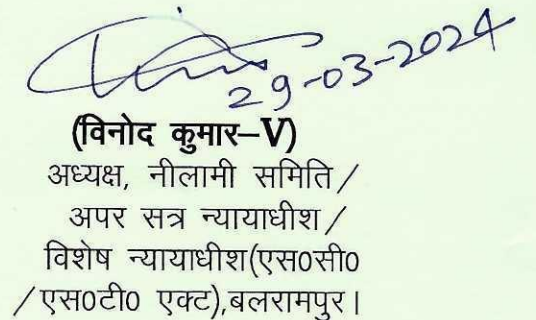 29-03-2024
(विनोद कुमार–V)
अध्यक्ष, नीलामी समिति /
अपर सत्र न्यायाधीश /
विशेष न्यायाधीश(एस0सी0
/एस0टी0 एक्ट),बलरामपुर।